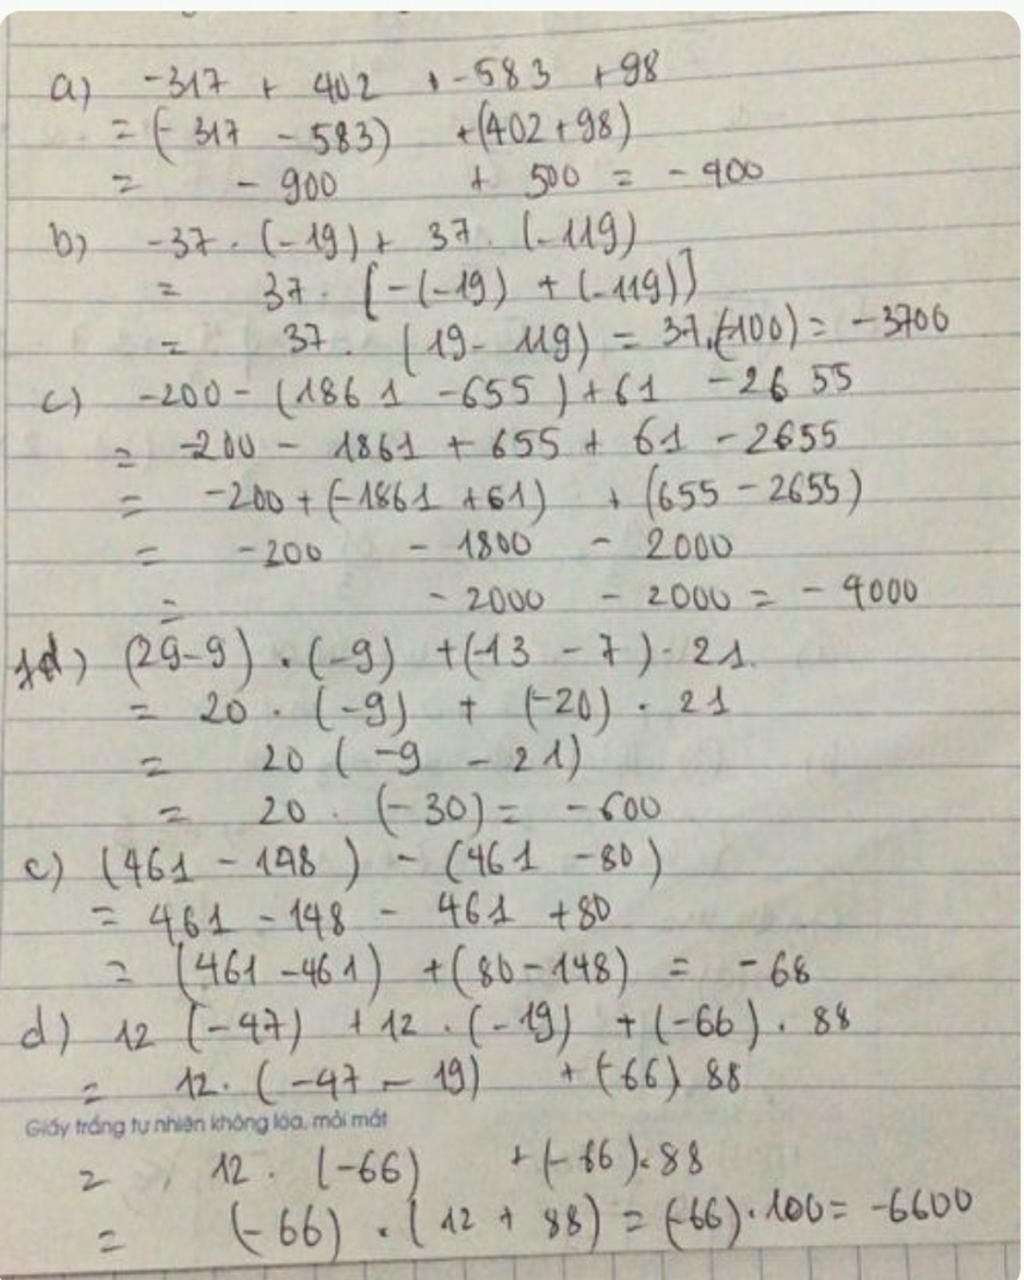 a) -317 + 402 + -583 + 98
= (-317 - 583) + (402 + 98)
= - 900 + 500 = - 400
b) -37 . (-19) + 37 . (-119)
= 37 . [-(-19) + (-119)]
= 37 . (19 - 119) = 37.(-100) = -3700
c) -200 - (1861 - 655) + 61 - 2655
= -200 - 1861 + 655 + 61 - 2655
= -200 + (-1861 + 61) + (655 - 2655)
= -200 - 1800 - 2000
= - 2000 - 2000 = - 4000
d) (29-9) . (-9) + (-13 - 7) . 21
= 20 . (-9) + (-20) . 21
= 20 ( -9 - 21)
= 20 . (-30) = -600
c) (461 - 148) - (461 - 80)
= 461 - 148 - 461 + 80
= (461 - 461) + (80 - 148) = - 68
d) 12 (-47) + 12 . (-19) + (-66) . 88
= 12. (-47 - 19) + (-66) 88
Giấy trắng tự nhiên không lóa, mỏi mắt
= 12 . (-66) + (-66).88
= (-66) . (12 + 88) = (-66).100 = -6600